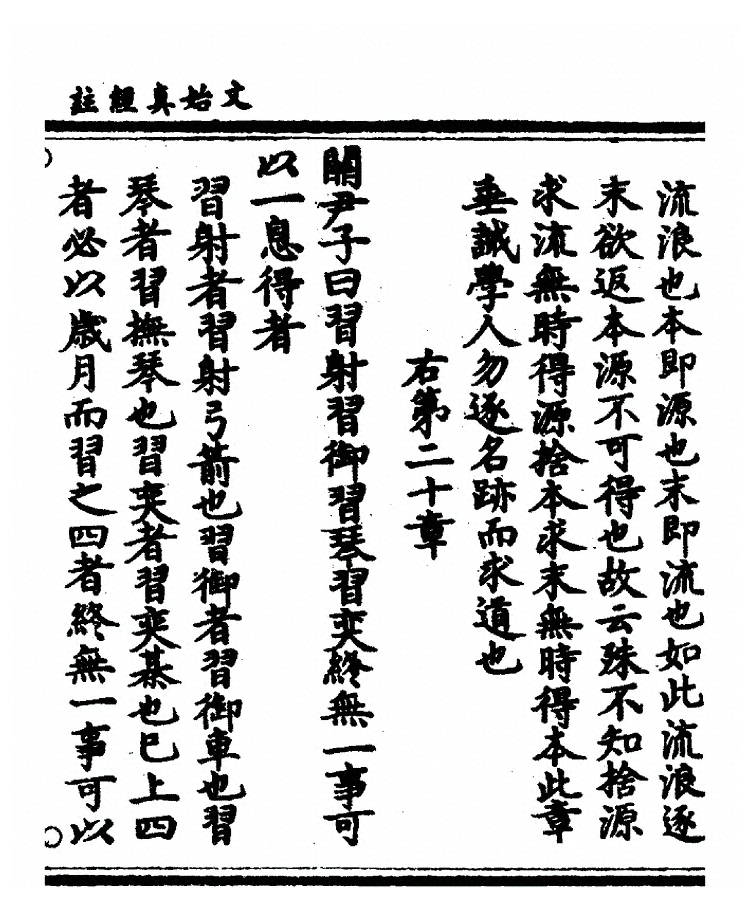 文始真經註
流浪也本即源也末即流也如此流浪逐
末欲返本源不可得也故云殊不知捨源
求流無時得源捨本求末無時得本此章
垂誡學人勿逐名跡而求道也
右第二十章
關尹子曰習射習御習琴習奕終無一事可
以一息得者
習射者習射弓箭也習御者習御車也習
琴者習撫琴也習奕者習奕棊也巳上四
者必以歲月而習之四者終無一事可以